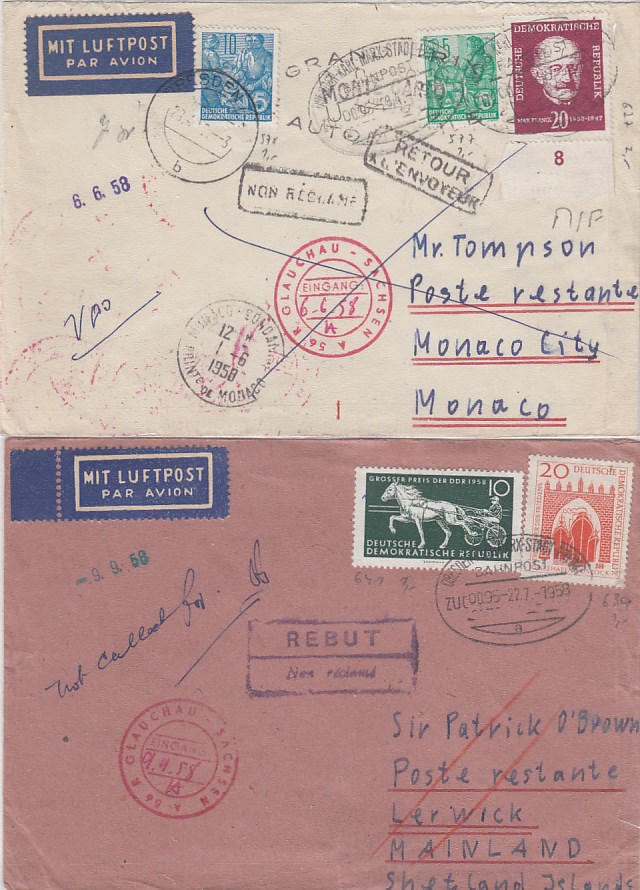 MIT LUFTPOST
PAR AVION
10
DEUTSCHE
DEMOKRATISCHE REPUBLIK
5
DEUTSCHE
DEMOKRATISCHE REPUBLIK
DEMOKRATISCHE
DEUTSCHE
REPUBLIK
MAX PLANCK 20 1858-1947
DRESDEN
b
GRAND
AUTO
BAHNPOST
577
8
6.6.58
NON RECLAMÉ
RETOUR
A L'ENVOYEUR
GLAUCHAU - SACHSEN
EINGANG
6.6.58
MONACO - CONDAMINE
12
1 - 6
1958
PRINTÉ DE MONACO
Mr. Tompson
Poste restante
Monaco City
Monaco
MIT LUFTPOST
PAR AVION
GROSSER PREIS DER DDR 1958
10
DEUTSCHE
DEMOKRATISCHE REPUBLIK
20 DEUTSCHE
DEMOKRATISCHE REPUBLIK
641
634
BAHNPOST
ZUG 0095-22.7.-1958
a
- 9. 9. 58
not called for.
REBUT
Non réclamé
GLAUCHAU - SACHSEN
EINGANG
9.9.58
Sir Patrick O'Brown
Poste restante
Lerwick
MAINLAND
Shetland Islands